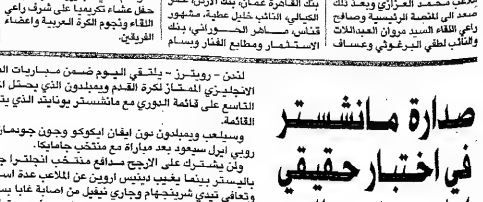 بلاعب محمد العزازي وبعد ذلك
صعد الى المنصة الرئيسية وصافح
راعي اللقاء السيد مروان العبداللات
والنائب لطفي البرغوثي وعساف
بنك القاهرة عمان، بنك الاردن،
الكيالي، النائب خليل عطية، مشهور
قناص، ماهر الحوراني، بنك
الاستثمار ومطابع الفنار وبسام
حفل عشاء تكريميا على شرف راعي
اللقاء ونجوم الكرة العربية واعضاء
الفريقين.
صدارة مانشستر
في اختبار حقيقي
لندن - رويترز - يلتقي اليوم ضمن مباريات
الانجليزي الممتاز لكرة القدم ويمبلدون الذي يحتل
التاسع على قائمة الدوري مع مانشستر يونايتد الذي
القائمة.
وسيلعب ويمبلدون دون ايفان ايكوكو وجون
روبي ايرل سيعود بعد مباراة مع منتخب جامايكا.
ولن يشترك على الارجح مدافع منتخب انجلترا
باليستر بينما يغيب دينيس اروين عن الملاعب عدة
وتعافى تيدي شرينجهام وجاري نيفيل من اصابة